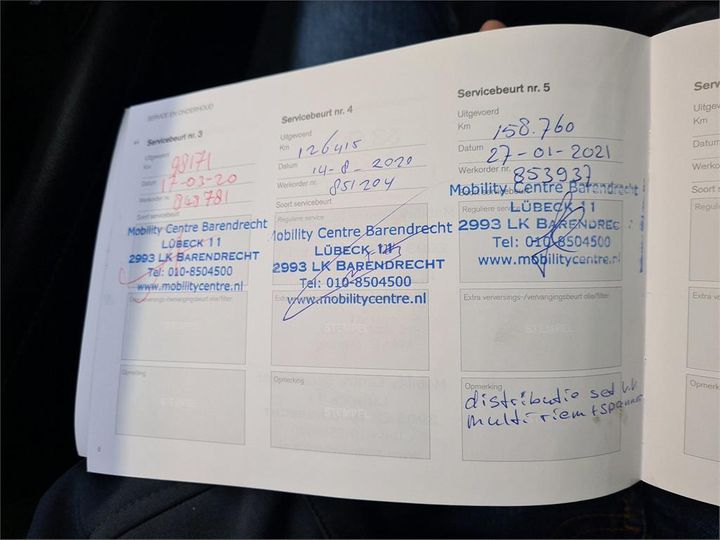 SERVICE EN ONDERHOUD
Servicebeurt nr. 3
Uitgevoerd
Km 98171
Datum 17-03-20
Werkorder nr. 843781
Soort servicebeurt
Mobility Centre Barendrecht
LÜBECK 11
2993 LK BARENDRECHT
Tel: 010-8504500
www.mobilitycentre.nl
Extra verversings-/vervangingsbeurt olie/filter
Opmerking
8
Servicebeurt nr. 4
Uitgevoerd
Km 126415
Datum 14-8-2020
Werkorder nr. 851204
Soort servicebeurt
Reguliere service
Mobility Centre Barendrecht
LÜBECK 11
2993 LK BARENDRECHT
Tel: 010-8504500
www.mobilitycentre.nl
STEMPEL
Opmerking
STEMPEL
Servicebeurt nr. 5
Uitgevoerd
Km 158.760
Datum 27-01-2021
Werkorder nr. 853937
Mobility Centre Barendrecht
Reguliere service
LÜBECK 11
2993 LK BARENDREC
Tel: 010-8504500
www.mobilitycentre.nl
Extra verversings-/vervangingsbeurt olie/filter
STEMPEL
Opmerking
distributie set
multiriem + spanner
Serv
Uitgev
Km
Datum
Werko
Soort
Regulie
Extra v
Opmerk